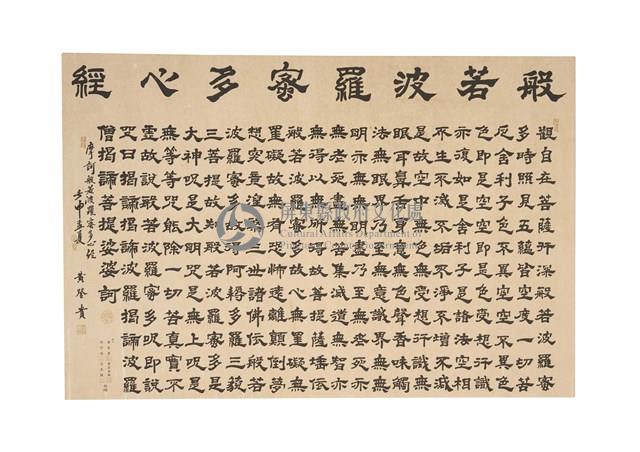 般若波羅蜜多心經
觀自在菩薩行深般若波羅蜜
多時照見五蘊皆空度一切苦
厄舍利子色不異空空不異色
色即是空空即是色受想行識
亦復如是舍利子是諸法空相
不生不滅不垢不淨不增不減
是故空中無色無受想行識無
眼耳鼻舌身意無色聲香味觸
法無眼界乃至無意識界無無
明亦無無明盡乃至無老死亦
無老死盡無苦集滅道無智亦
無得以無所得故菩提薩埵依
般若波羅蜜多故心無罣礙無
罣礙故無有恐怖遠離顛倒夢
想究竟涅槃三世諸佛依般若
波羅蜜多故得阿耨多羅三藐
三菩提故知般若波羅蜜多是
大神咒是大明咒是無上咒是
無等等咒能除一切苦真實不
虛故說般若波羅蜜多咒即說
咒曰揭諦揭諦波羅揭諦波羅
僧揭諦菩提娑婆訶
摩訶般若波羅蜜多心經
壬申孟夏 黃登貴
屏東縣政府文化處
Cultural Affairs Department of
Pingtung County Government